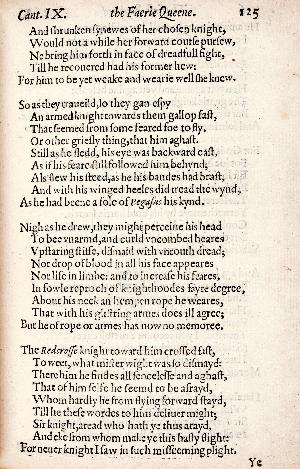 Cant. IX. the Faerie Queene. 125
And shrunken synewes of her chosen knight,
Would not a while her forward course pursew,
Ne bring him forth in face of dreadfull fight,
Till he recouered had his former hew:
For him to be yet weake and wearie well she knew.
So as they traueild, lo they gan espy
An armed knight towards them gallop fast,
That seemed from some feared foe to fly,
Or other griesly thing, that him aghast.
Still as he fledd, his eye was backward cast,
As if his feare still followed him behynd;
Als flew his steed, as he his bandes had brast,
And with his winged heeles did tread the wynd,
As he had beene a fole of Pegasus his kynd.
Nigh as he drew, they might perceiue his head
To bee vnarmd, and curld vncombed heares
Vpstaring stiffe, dismaid with vncouth dread;
Nor drop of blood in all his face appeares
Nor life in limbe: and to increase his feares,
In fowle reproch of knighthoodes fayre degree,
About his neck an hempen rope he weares,
That with his glistring armes does ill agree;
But he of rope or armes has now no memoree.
The Redcrosse knight toward him crossed fast,
To weet, what mister wight was so dismayd:
There him he findes all sencelesse and aghast,
That of him selfe he seemd to be afrayd,
Whom hardly he from flying forward stayd,
Till he these wordes to him deliuer might;
Sir knight, aread who hath ye thus arayd,
And eke from whom make ye this hasty flight:
For neuer knight I saw in such misseeming plight.
Ye